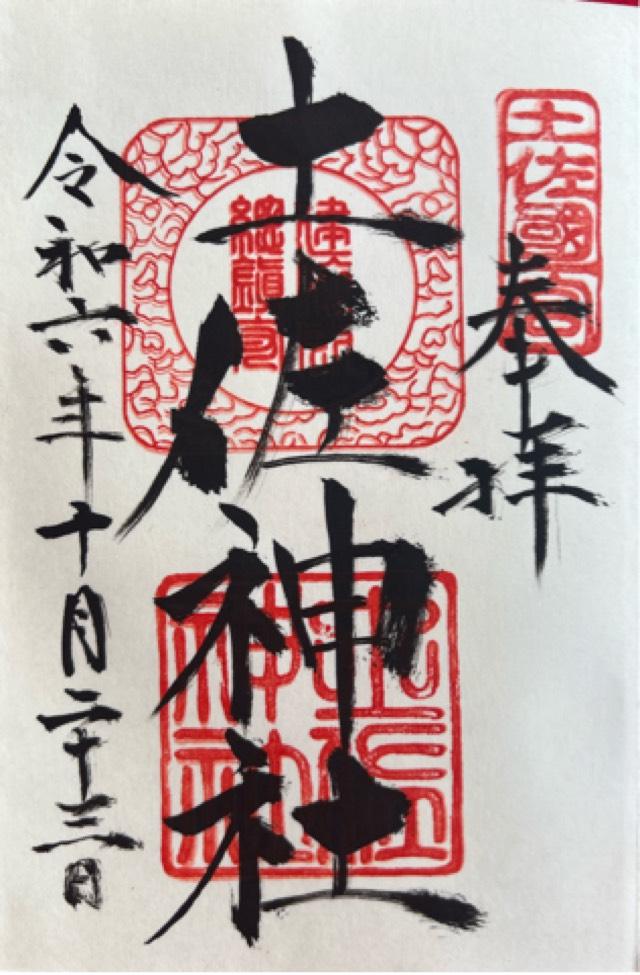 土佐國一宮
奉拝
土佐神社
土佐神社
令和六年十月二十三日